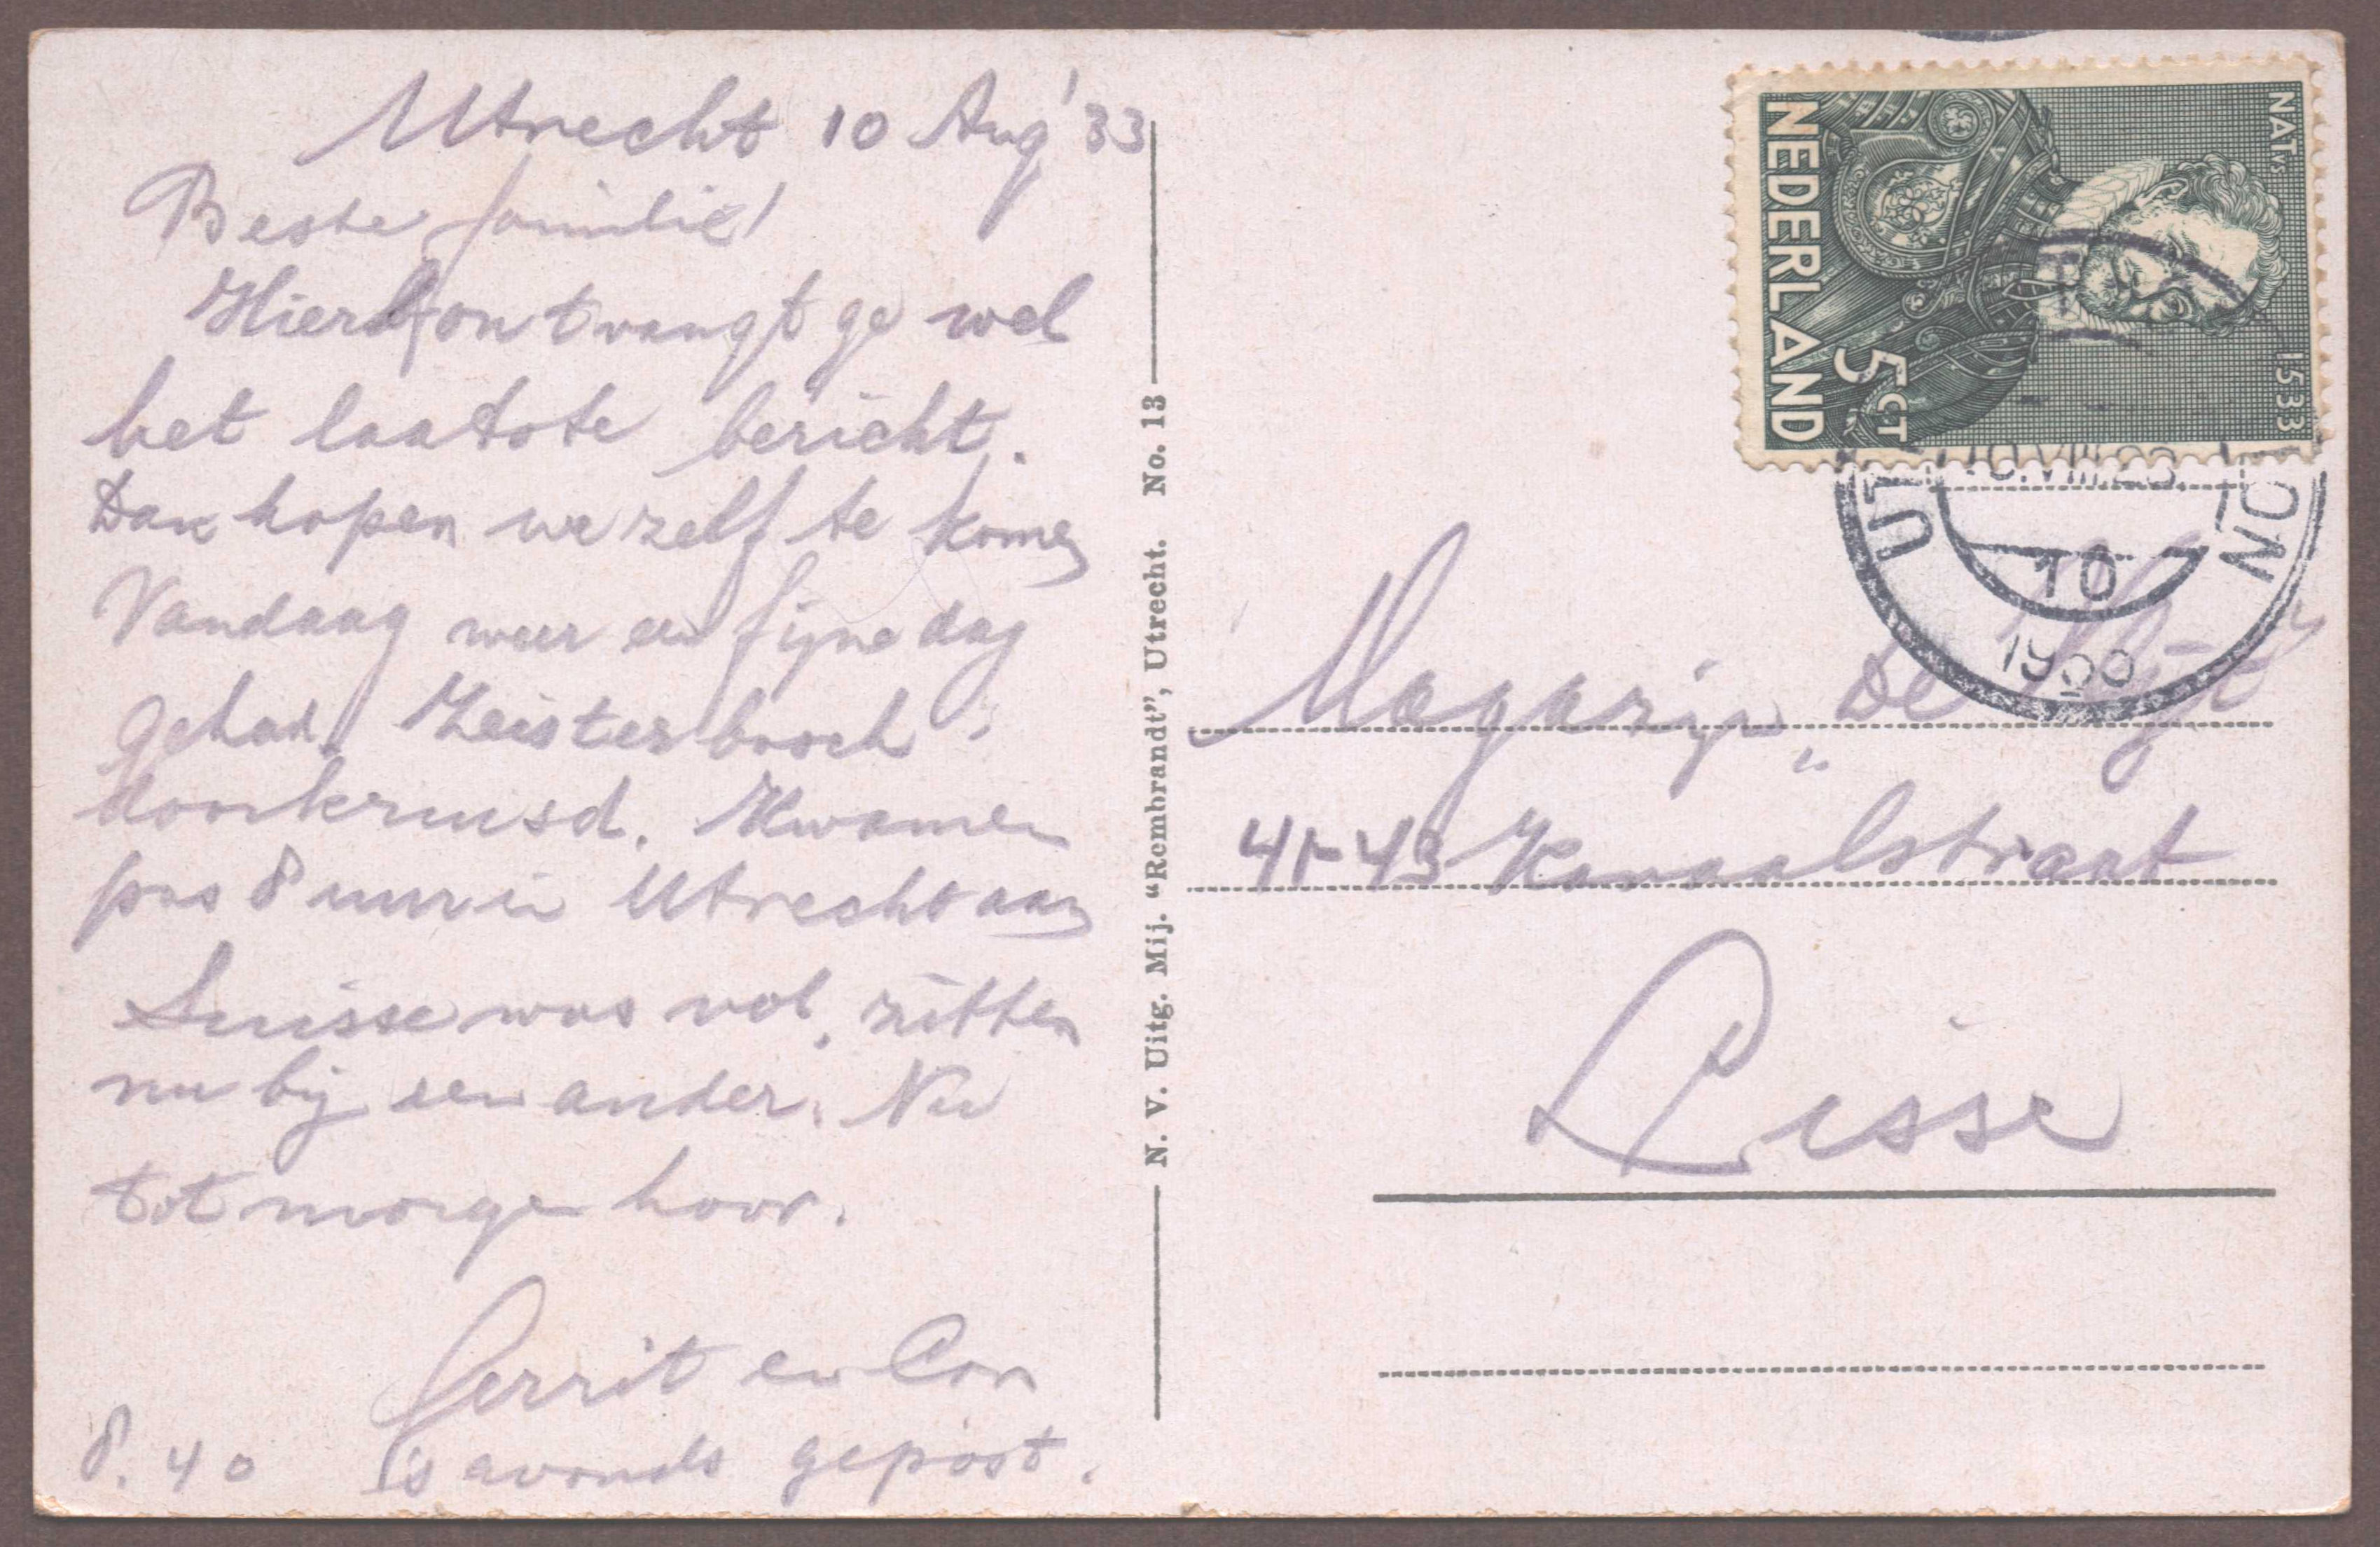 Utrecht 10 Aug '33
Beste familie!
Hierbij ontvangt ge wel
het laatste bericht.
Dan hopen we zelf te komen
Vandaag weer een fijne dag
gehad. Zeisterbosch
doorkruisd. Kwamen
pas 8 uur in Utrecht aan
Suisse was vol, zitten
nu bij een ander. Nu
tot morgen hoor.
Gerrit en Cor
8.40 's avonds gepost.
N. V. Uitg. Mij. “Rembrandt”, Utrecht. No. 13
NEDERLAND
5 CT
NAT. vs
1533
10
Magazijn „De
41-43 Kanaalstraat
Lisse